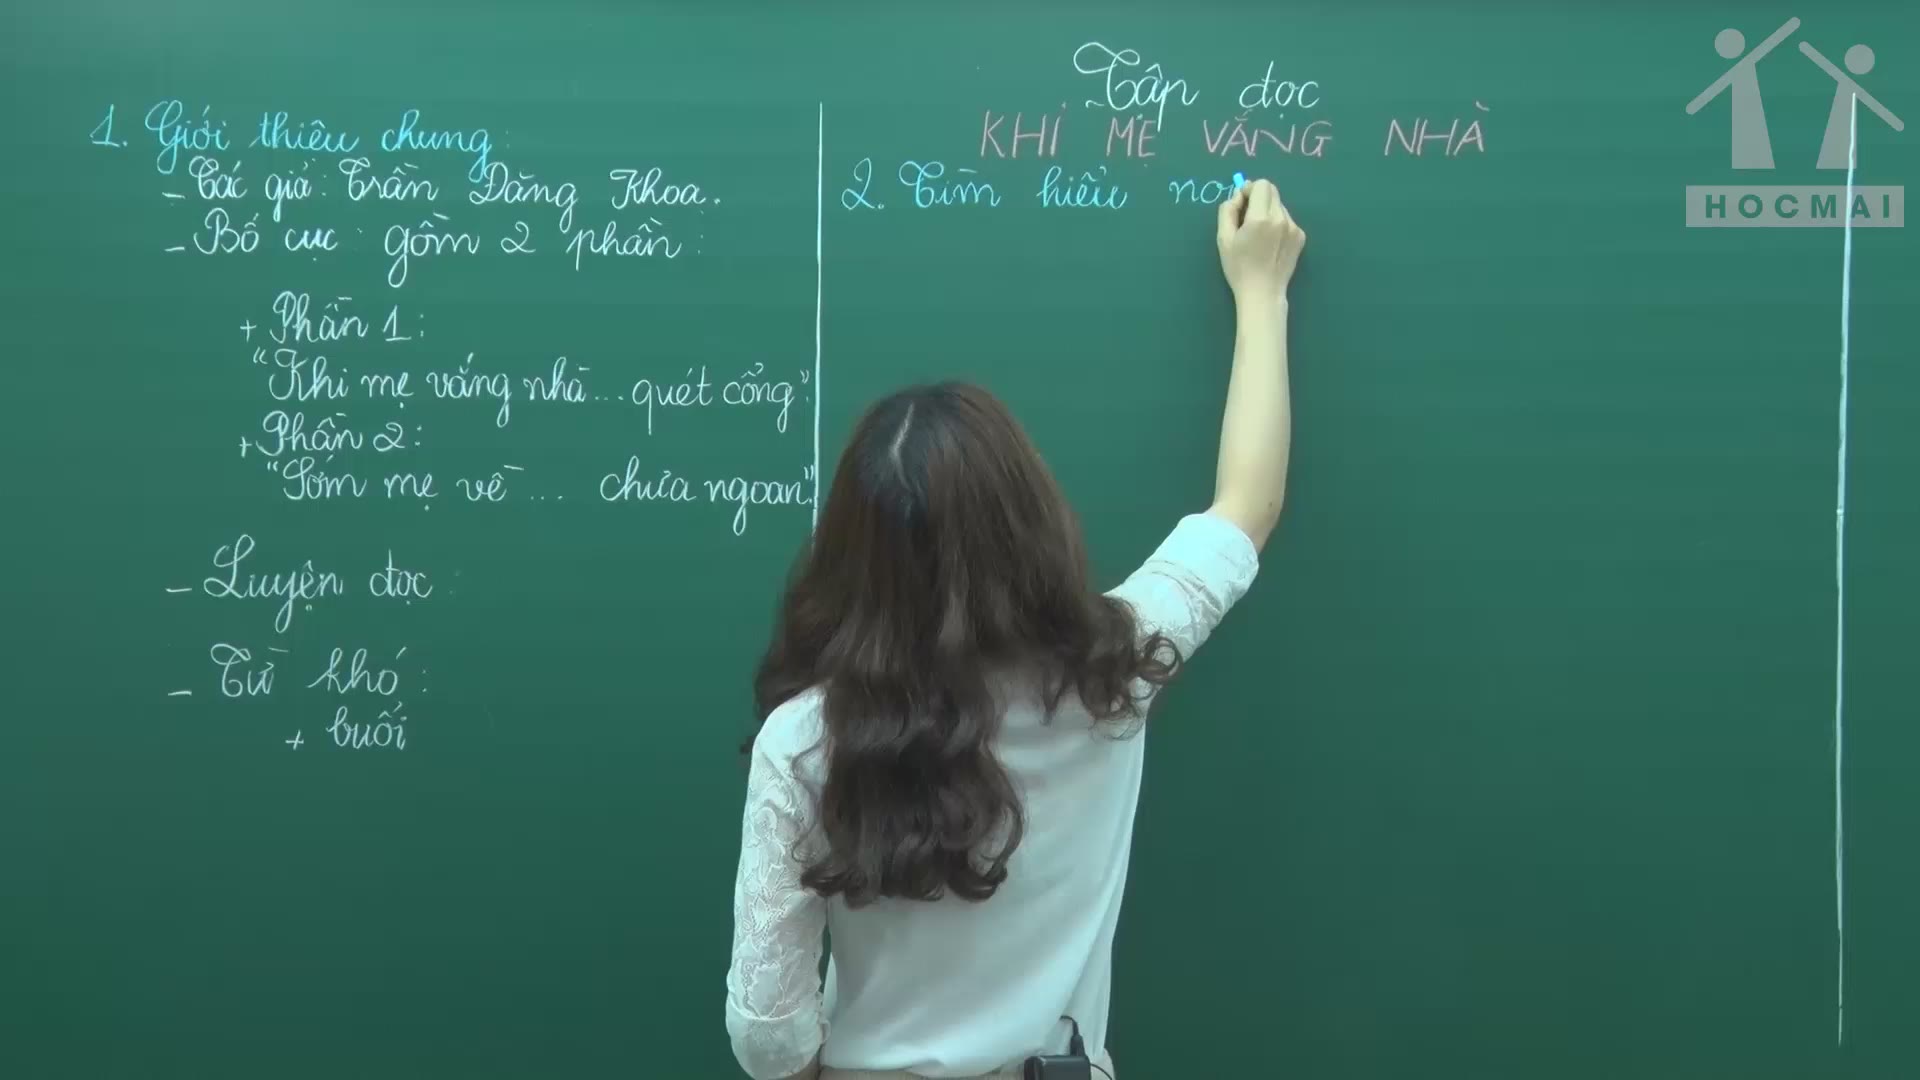 Tập đọc
KHI MẸ VẮNG NHÀ
1. Giới thiệu chung:
- Tác giả: Trần Đăng Khoa.
- Bố cục: gồm 2 phần:
+ Phần 1:
"Khi mẹ vắng nhà... quét cổng".
+ Phần 2:
"Sớm mẹ về ... chưa ngoan".
- Luyện đọc:
- Từ khó:
+ buổi
2. Tìm hiểu
HOCMAI